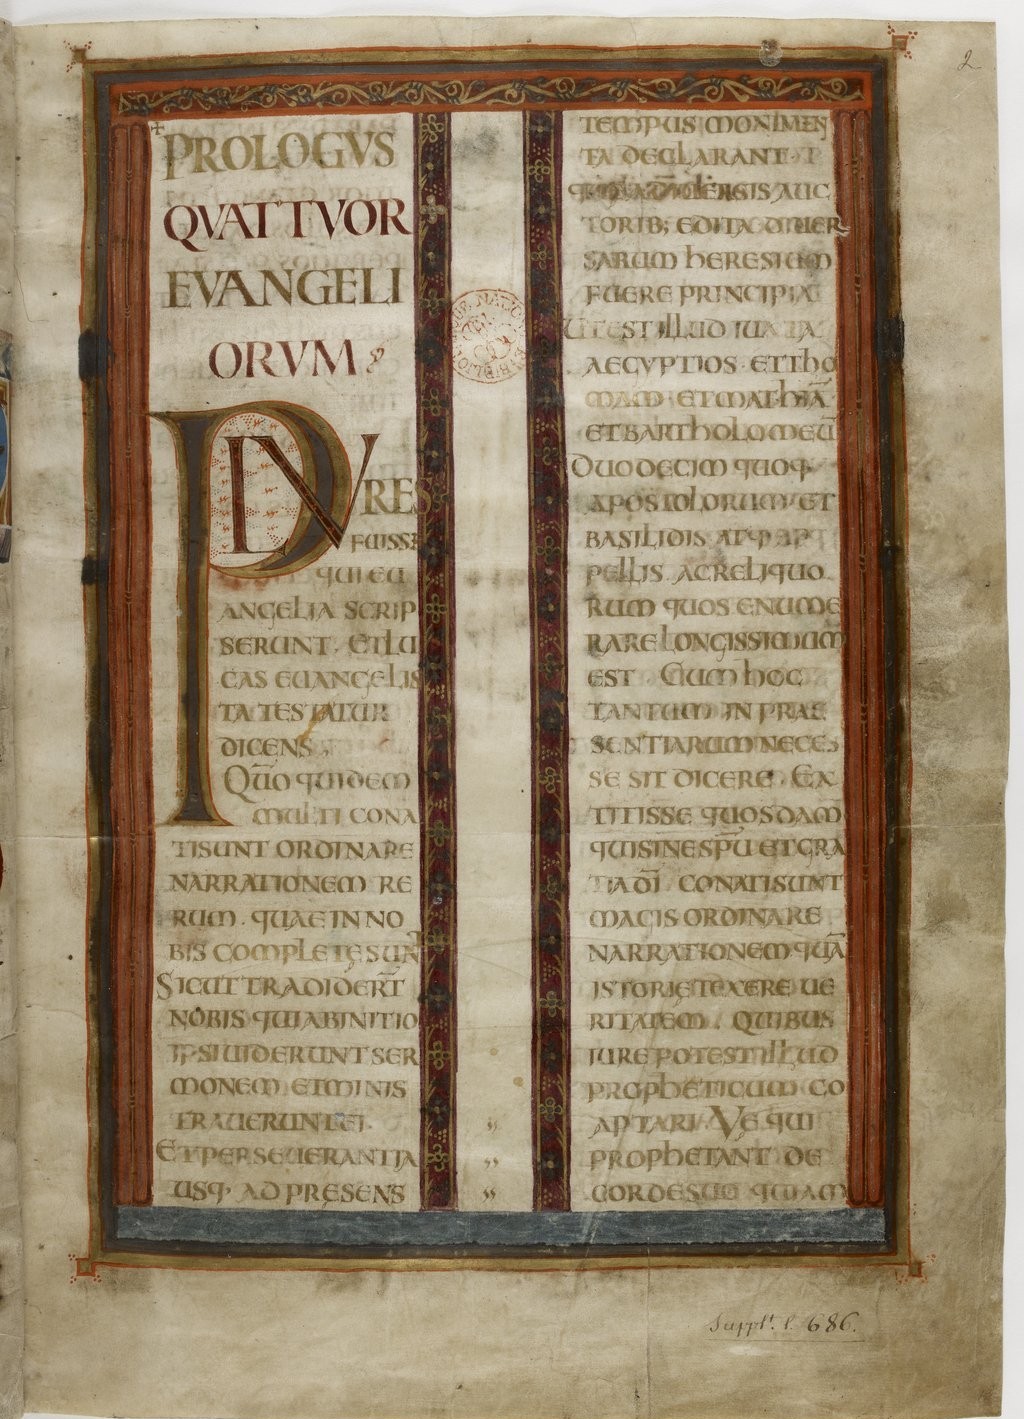 2
PROLOGVS
QVATTVOR
EVANGELI
ORVM
PLVRES
FUISSE
QUI EU
ANGELIA SCRIP
SERUNT. ET LU
CAS EUANGELIS
TA TESTATUR
DICENS,
QUO QUIDEM
MULTI CONA
TI SUNT ORDINARE
NARRATIONEM RE
RUM. QUAE IN NO
BIS COMPLETE SUNT
SICUT TRADIDERT
NOBIS QUI AB INITIO
IPSI UIDERUNT SER
MONEM. ET MINIS
TRAUERUNT EI.
ET PERSEUERANT IA
USQ. AD PRESENS
TEMPUS MONIMEN
TA DECLARANT.
AUC
TORIB; EDITA DIUER
SARUM HERESIUM
FUERE PRINCIPIA
UT EST ILLUD IUXTA
AEGYPTIOS. ET THO
MAM. ET MATHIA
ET BARTHOLOMEU
DUODECIM QUOQ.
APOSTOLORUM. ET
BASILIDIS ATQ. AP
PELLIS. AC RELIQUO
RUM QUOS ENUME
RARE LONGISSIMUM
EST. CUM HOC
TANTUM IN PRAE
SENTIARUM NECES
SE SIT DICERE. EX
TITISSE QUOSDAM
QUI SINE SPU ET GRA
TIA DI CONATI SUNT
MAGIS ORDINARE
NARRATIONEM QUA
ISTORIE TEXERE UE
RITATEM. QUIBUS
IURE POTEST ILLUD
PROPHETICUM CO
APTARI. VE QUI
PROPHETANT DE
CORDE SUO QUI AM
Supplt. l. 686.